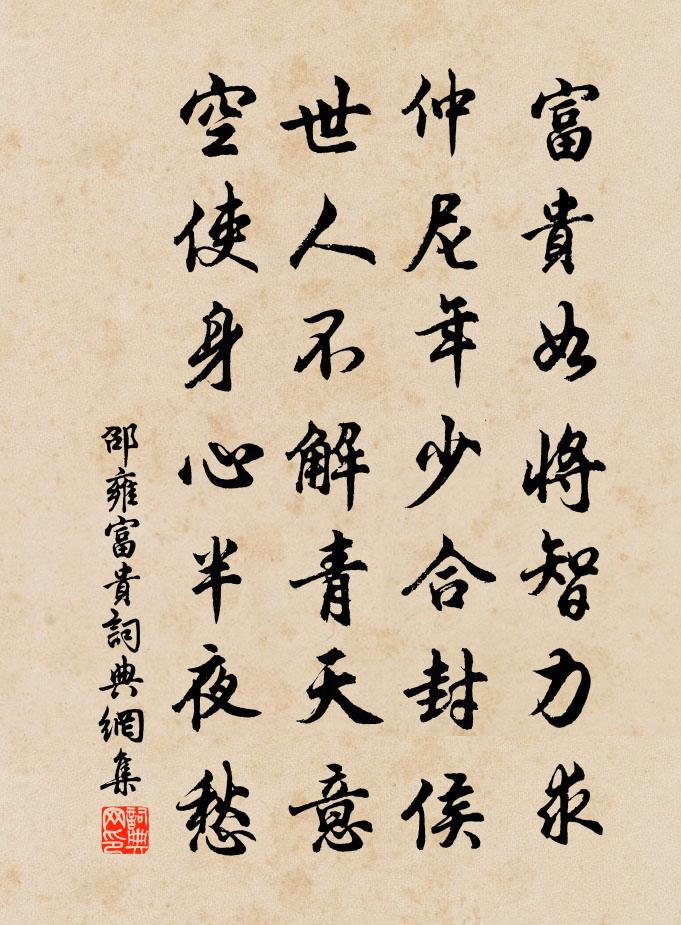 富貴如將智力求
仲尼年少合封侯
世人不解青天意
空使身心半夜愁
邵雍富貴詞典網集
詞典網印